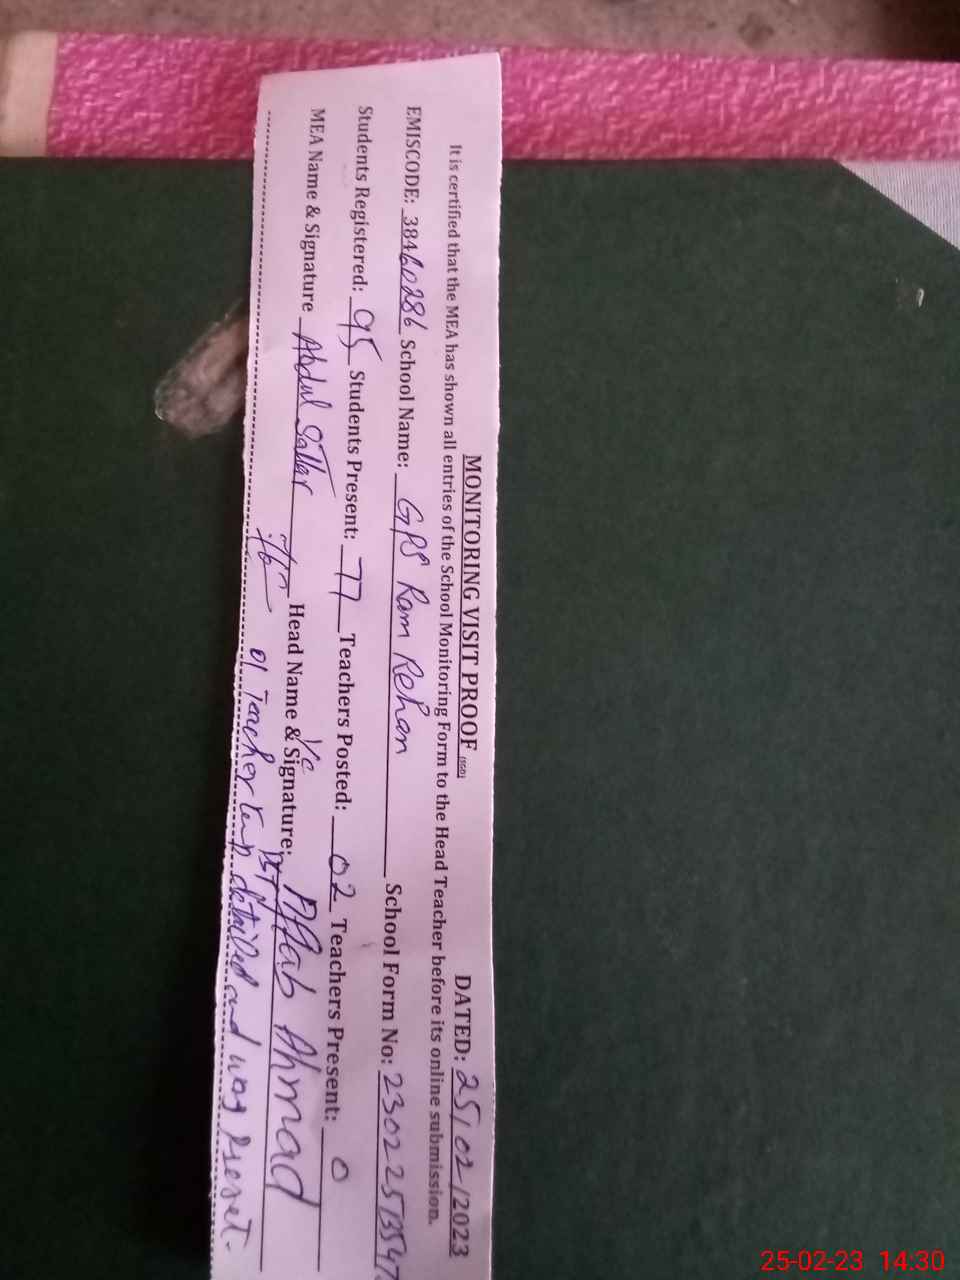 MONITORING VISIT PROOF DATED: 25/02/2023
It is certified that the MEA has shown all entries of the School Monitoring Form to the Head Teacher before its online submission.
EMISCODE: 38460286 School Name: GPS Ram Rehan School Form No: 23022513547
Students Registered: 95 Students Present: 77 Teachers Posted: 02 Teachers Present: 0
MEA Name & Signature Abdul Sattar Head Name & Signature: I/C Aftab Ahmad PST
01 Teacher temp detailed and was Present.
25-02-23 14:30